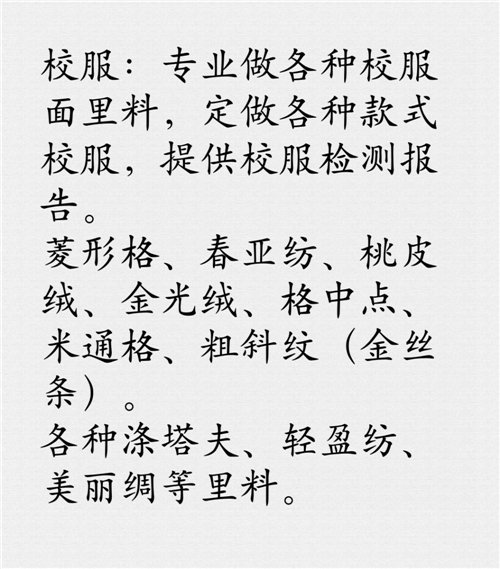 校服：专业做各种校服
面里料，定做各种款式
校服，提供校服检测报
告。
菱形格、春亚纺、桃皮
绒、金光绒、格中点、
米通格、粗斜纹（金丝
条）。
各种涤塔夫、轻盈纺、
美丽绸等里料。